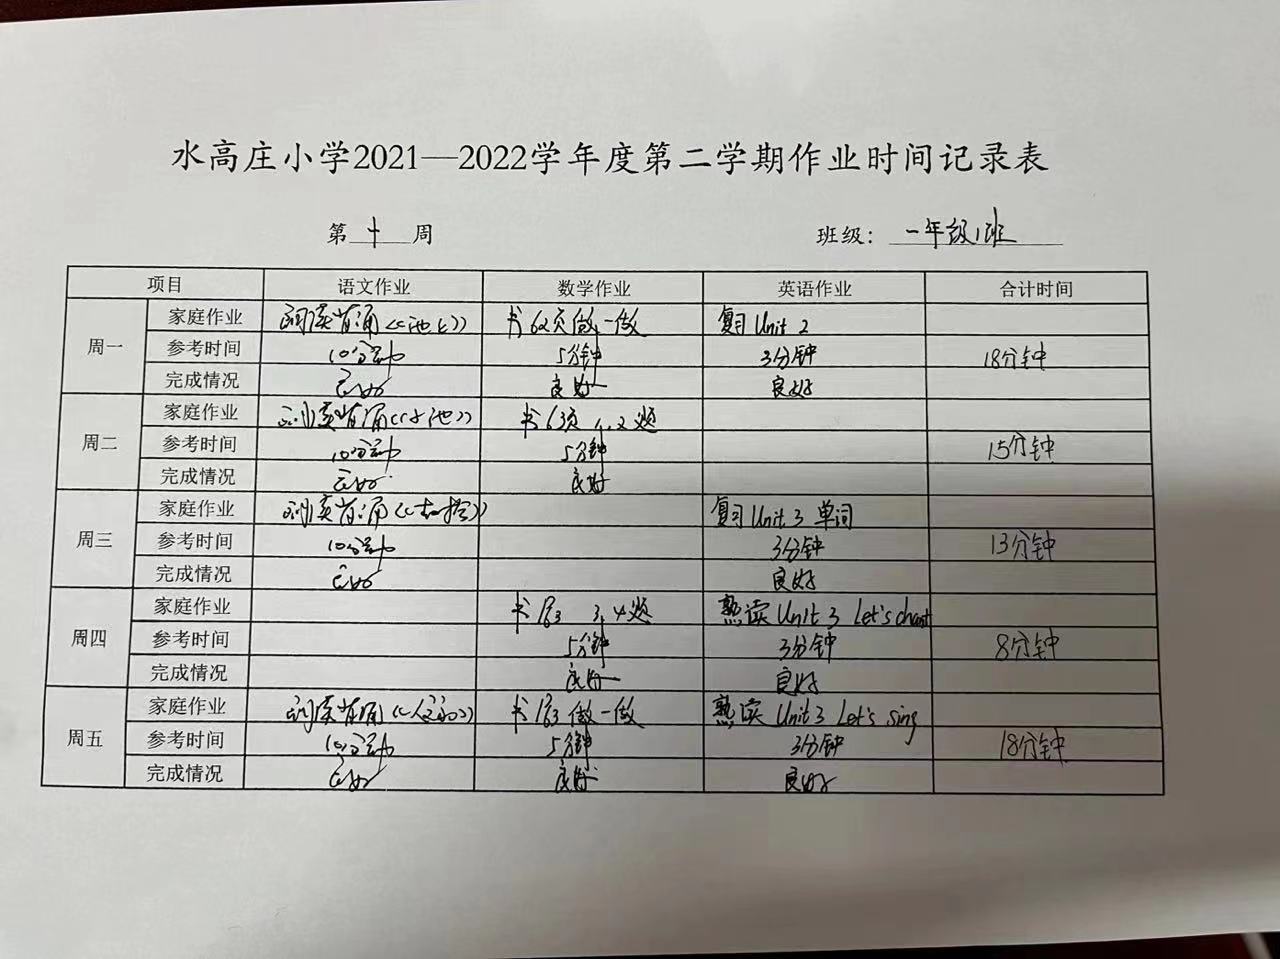 水高庄小学2021—2022学年度第二学期作业时间记录表
第 十 周 班级： 一年级1班
项目 语文作业 数学作业 英语作业 合计时间
周一
家庭作业 朗读背诵《池上》 书62页做一做 复习 Unit 2
参考时间 10分钟 5分钟 3分钟 18分钟
完成情况 良好 良好 良好
周二
家庭作业 朗读背诵《小池》 书63页 1、2题
参考时间 10分钟 5分钟 15分钟
完成情况 良好 良好
周三
家庭作业 朗读背诵 复习 Unit 3 单词
参考时间 10分钟 3分钟 13分钟
完成情况 良好 良好
周四
家庭作业 书 3、4题 熟读 Unit 3 Let's chant
参考时间 5分钟 3分钟 8分钟
完成情况 良好 良好
周五
家庭作业 朗读背诵 书 做一做 熟读 Unit 3 Let's sing
参考时间 10分钟 5分钟 3分钟 18分钟
完成情况 良好 良好 良好